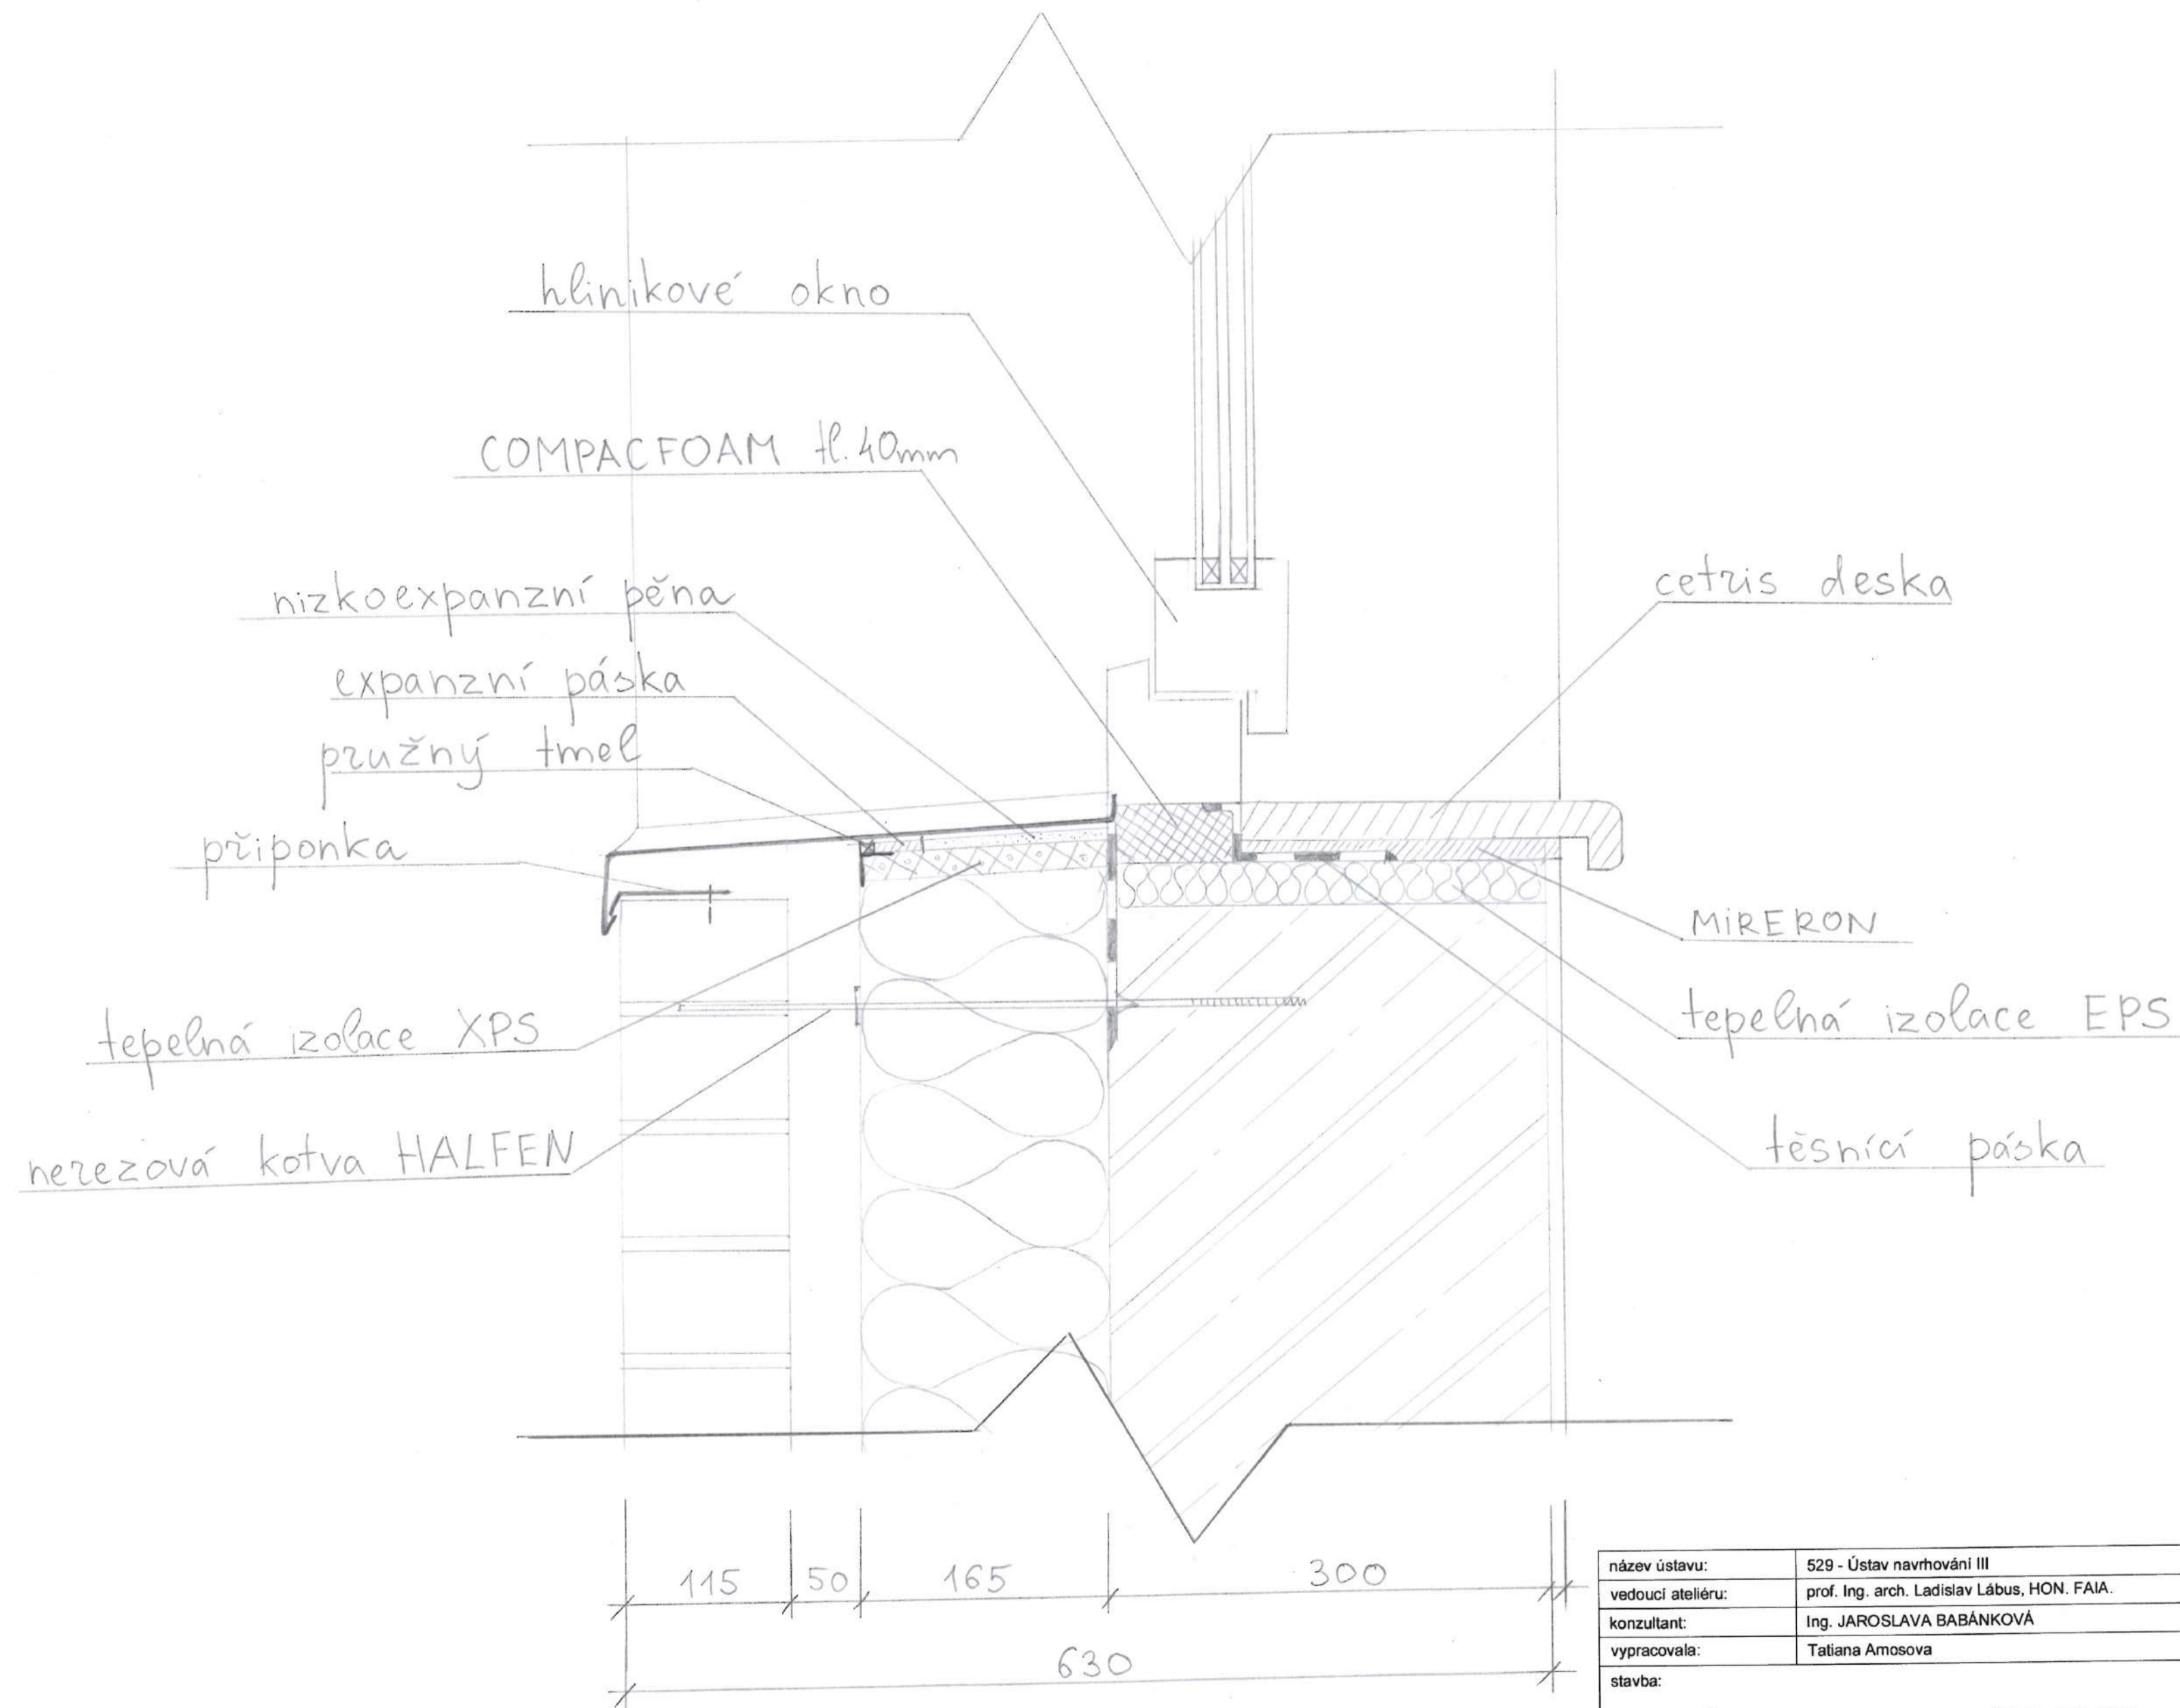 hlinikové okno
COMPACFOAM tl. 40mm
nizkoexpanzní pěna
cetris deska
expanzní páska
pružný tmel
příponka
MiRERON
tepelná izolace XPS
tepelná izolace EPS
nerezová kotva HALFEN
těsnící páska
115 50 165 300
630
název ústavu: 529 - Ústav navrhování III
vedoucí ateliéru: prof. Ing. arch. Ladislav Lábus, HON. FAIA.
konzultant: Ing. JAROSLAVA BABÁNKOVÁ
vypracovala: Tatiana Amosova
stavba: